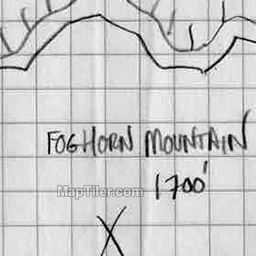 FOGHORN MOUNTAIN
1700'
MapTiler.com
X